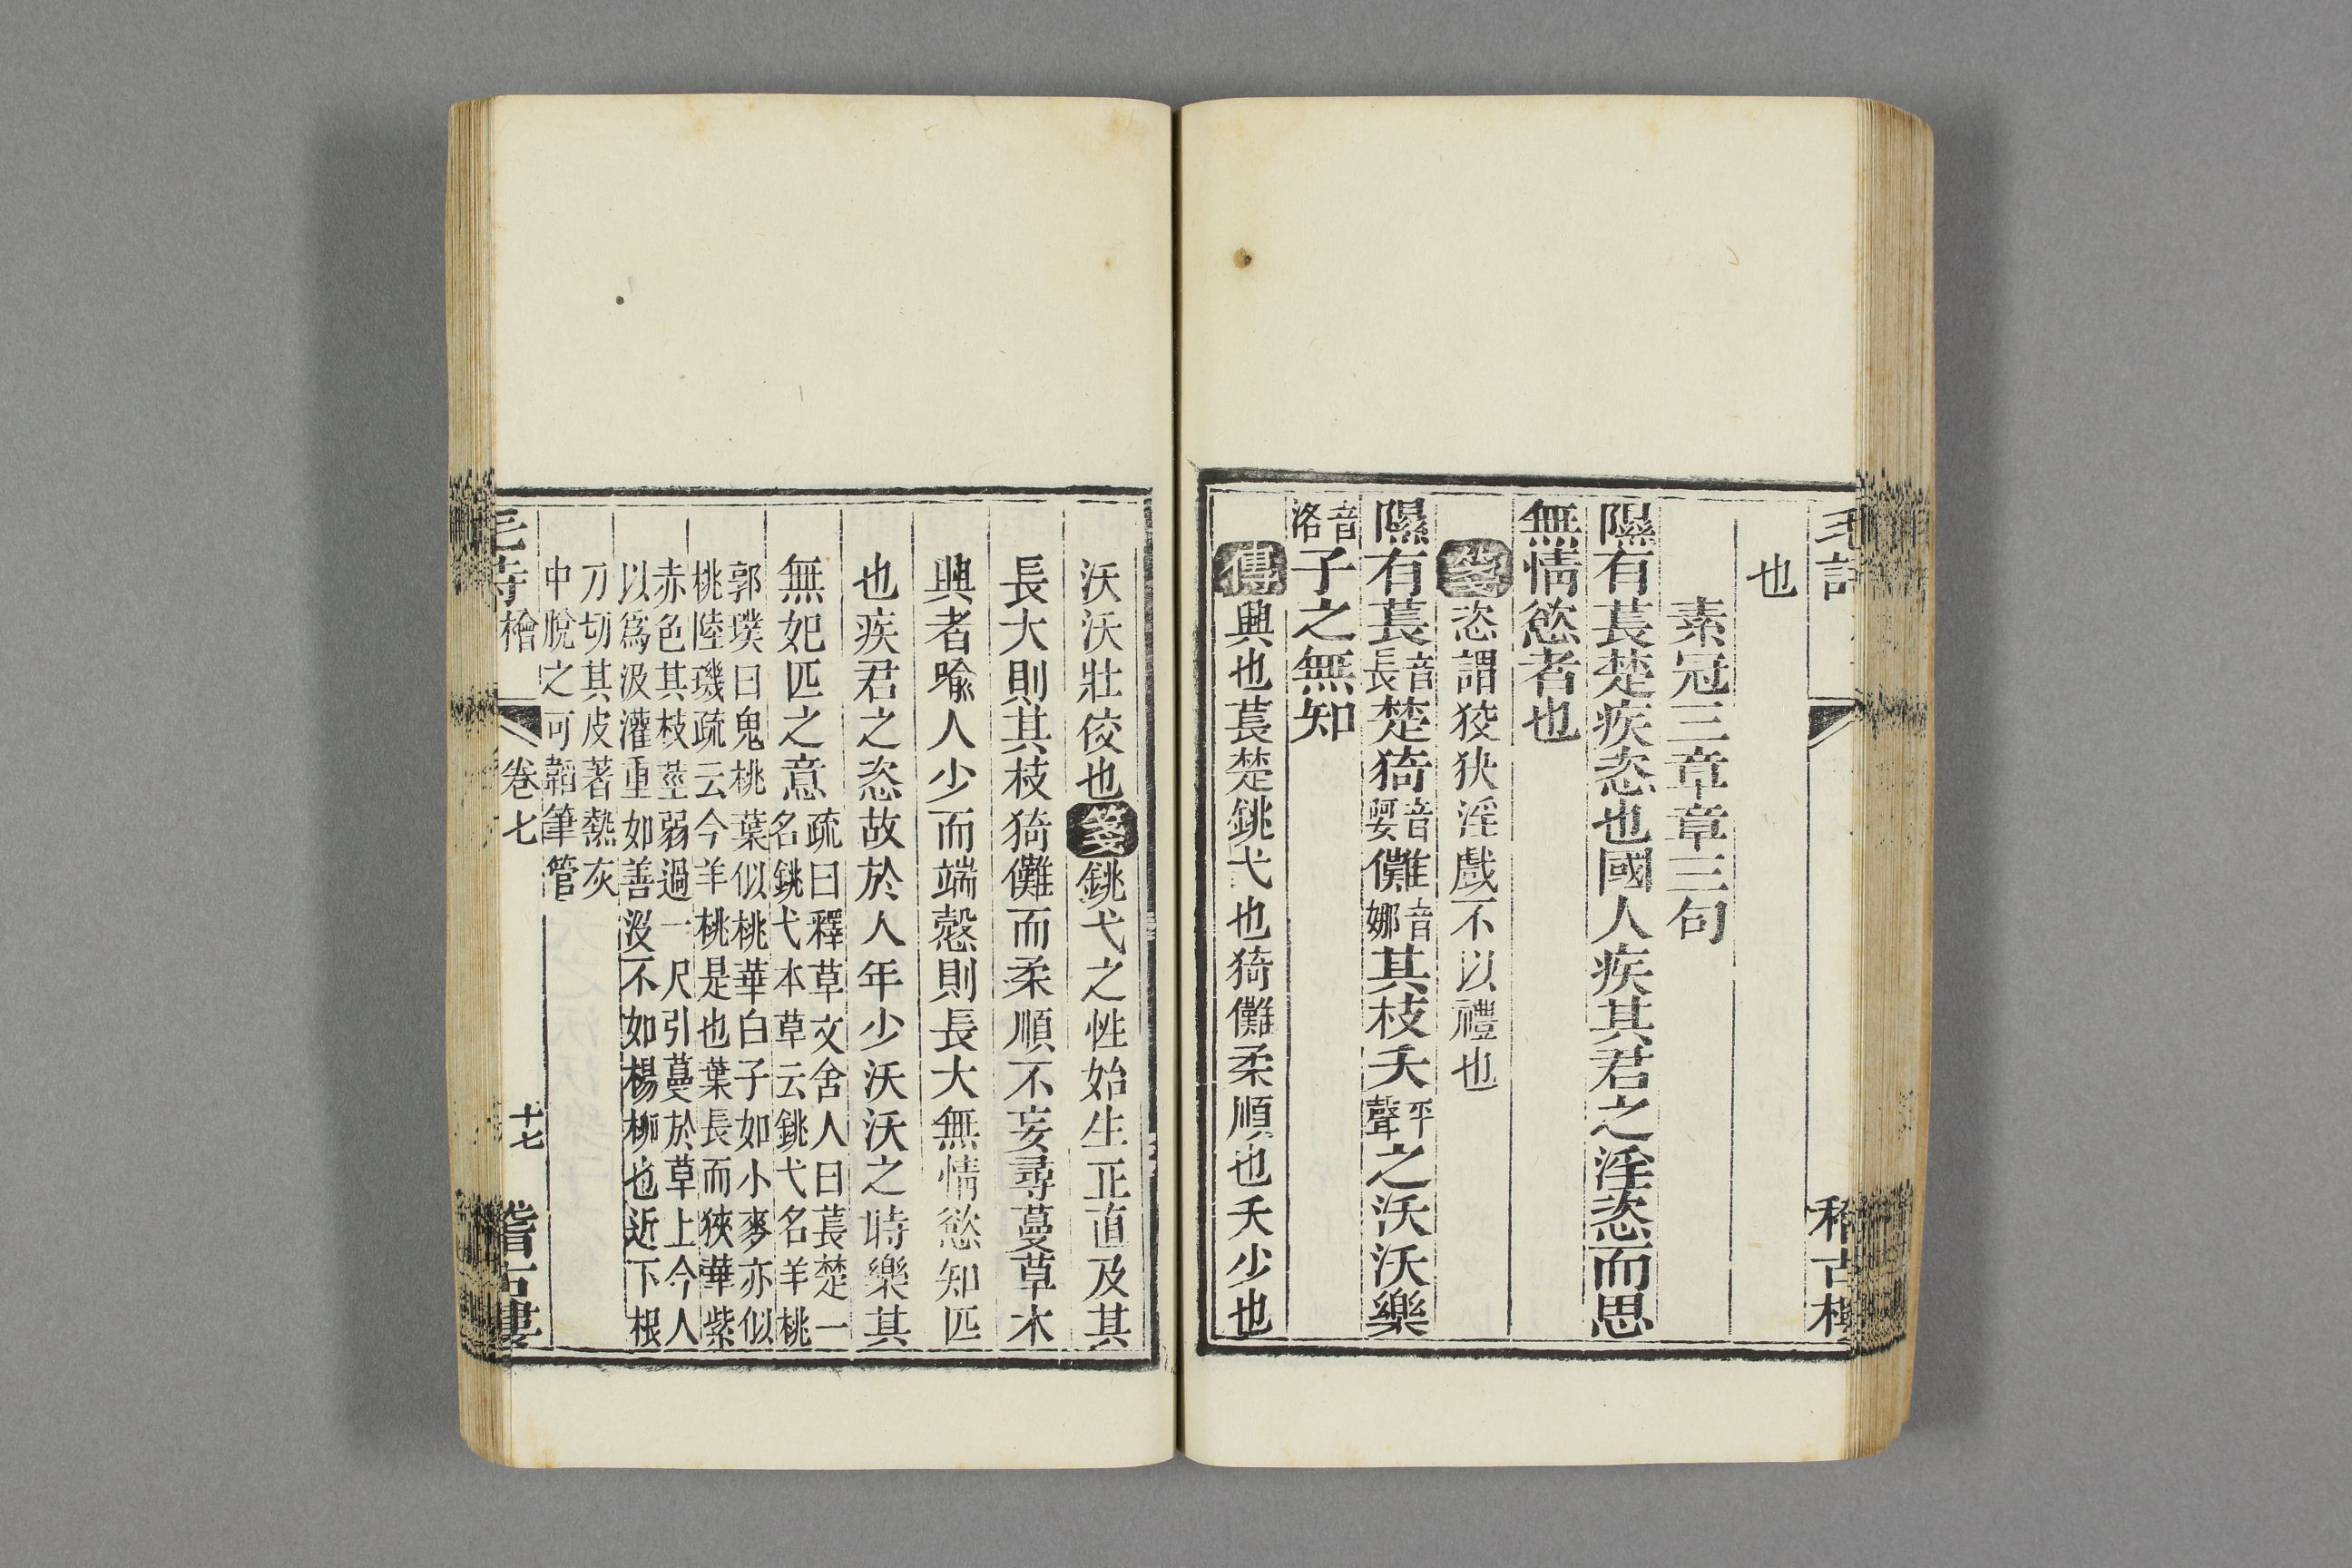 毛詩
稽古樓
也
素冠三章章三句
隰有萇楚疾恣也國人疾其君之淫恣而思
無情慾者也
箋恣謂狡狭淫戲不以禮也
隰有萇音長楚猗音婴儺音娜其枝夭平聲之沃沃樂
音洛子之無知
傳興也萇楚銚弋也猗儺柔順也夭少也
沃沃壯佼也箋銚弋之性始生正直及其
長大則其枝猗儺而柔順不妄尋蔓草木
興者喩人少而端慤則長大無情慾知匹
也疾君之恣故於人年少沃沃之時樂其
無妃匹之意疏曰釋草文舍人曰萇楚一
名銚弋本草云銚弋名羊桃
郭璞曰鬼桃葉似桃華白子如小麥亦似
桃陸璣疏云今羊桃是也葉長而狹華紫
赤色其枝莖弱過一尺引蔓於草上今人
以爲汲灌重如善没不如楊柳也近下根
刀切其皮著熱灰
中脫之可韜筆管
毛詩檜 卷七 十七 稽古樓